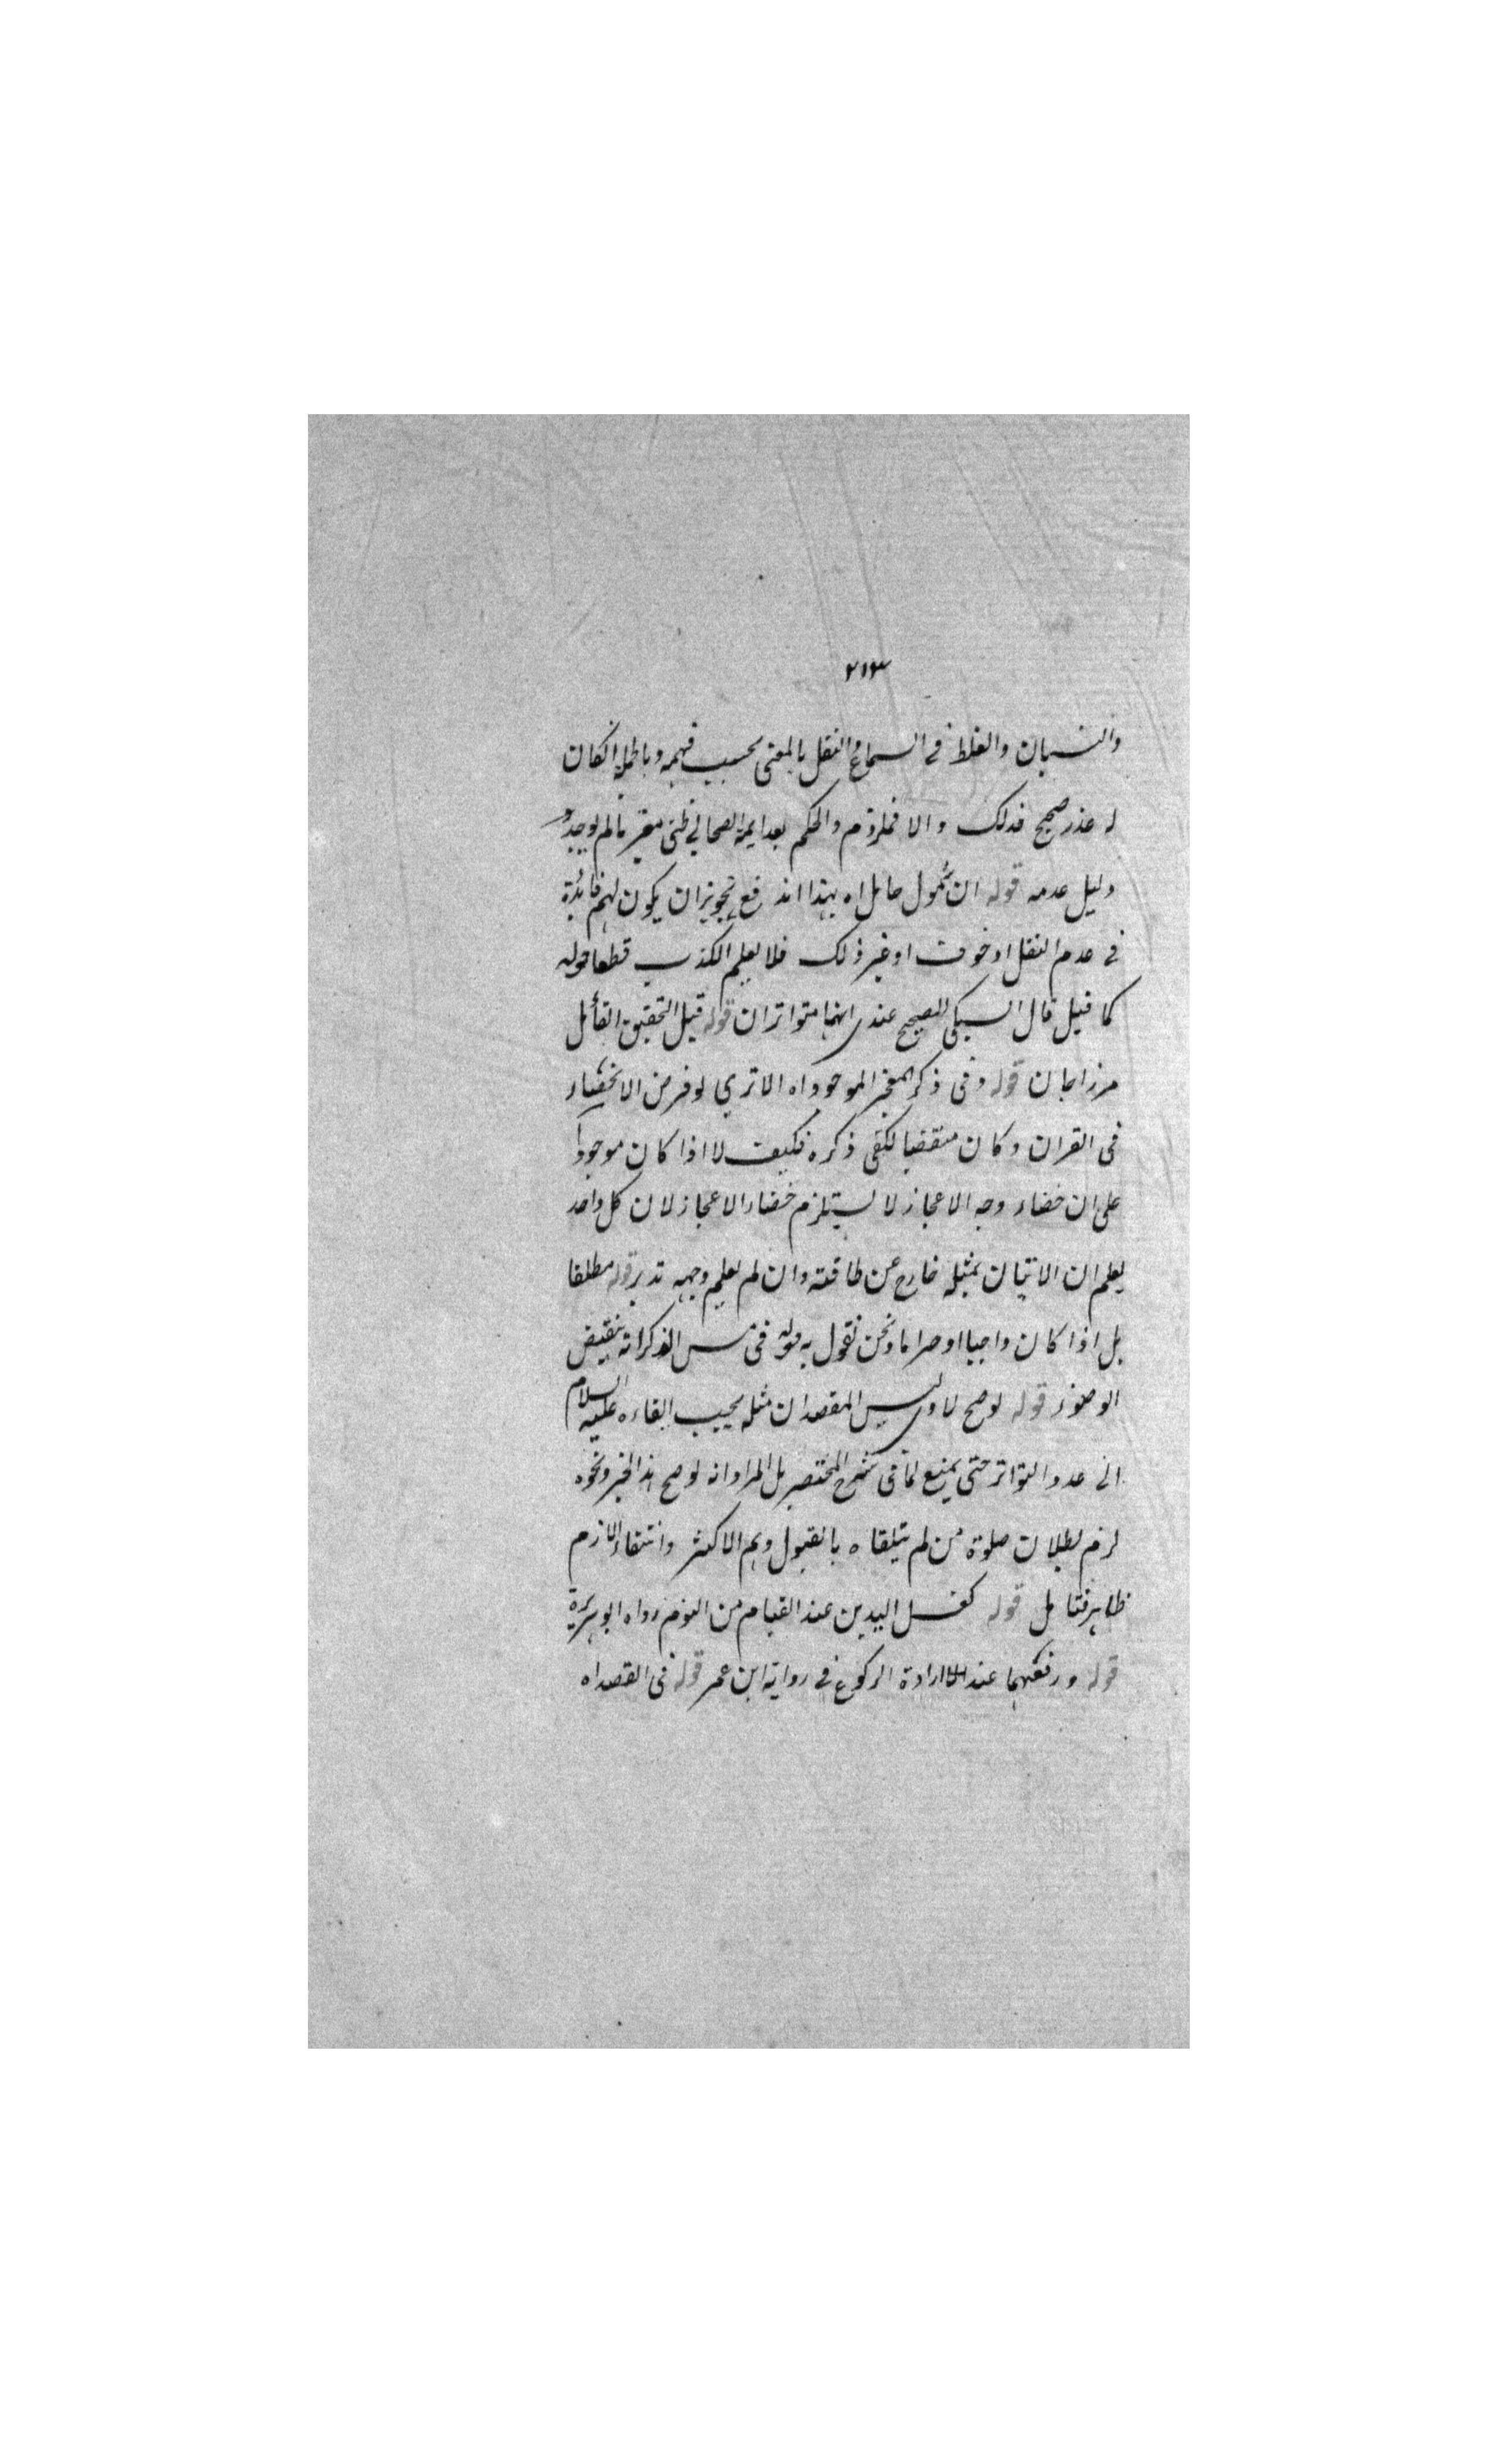 ٢١٣
والنسيان والغلط في السماع والنقل بالمعنى بحسب فهمه وبالجملة انكان
له عذر صحيح فذلك والا فملزوم والحكم بعدالة الصحابي ظني معتبر مالم يوجد
دليل عدمه قوله ان شمول حامل اه بهذا اندفع تجويز ان يكون لهم فائدة
في عدم النقل او خوف او غير ذلك فلا يعلم الكذب قطعا قوله
كما قيل قال السبكي الصحيح عندي انهما متواتران قوله قيل التحقيق القائل
مرزاجان قوله وفى ذكر المعجز الموجود اه الا ترى لو فرض الانحفاء
فى القران وكان منقضيا لكفى ذكره فكيف لا اذا كان موجودا
على ان خفاء وجه الاعجاز لا يستلزم خفاء الاعجاز لان كل واحد
يعلم ان الاتيان بمثله خارج عن طاقته وان لم يعلم وجهه تدبر قوله مطلقا
بل اذا كان واجبا او حراما ونحن نقول به قوله فى مس الذكر انه ينقيض
الوضوء قوله لو صح لاوى ليس المقصد ان مثله يجيب القاءه عليه السلام
الى عدد التواتر حتى يمنع لما فى شرح المختصر بل المراد انه لو صح هذا الخبر ونحوه
لزم بطلان صلوة من لم يتلقاه بالقبول وهم الاكثر وانتفاء اللازم
ظاهر فتامل قوله كغسل اليدين عند القيام من النوم رواه ابو هريرة
قوله ورفعهما عند ارادة الركوع في رواية ابن عمر قوله فى القصد اه